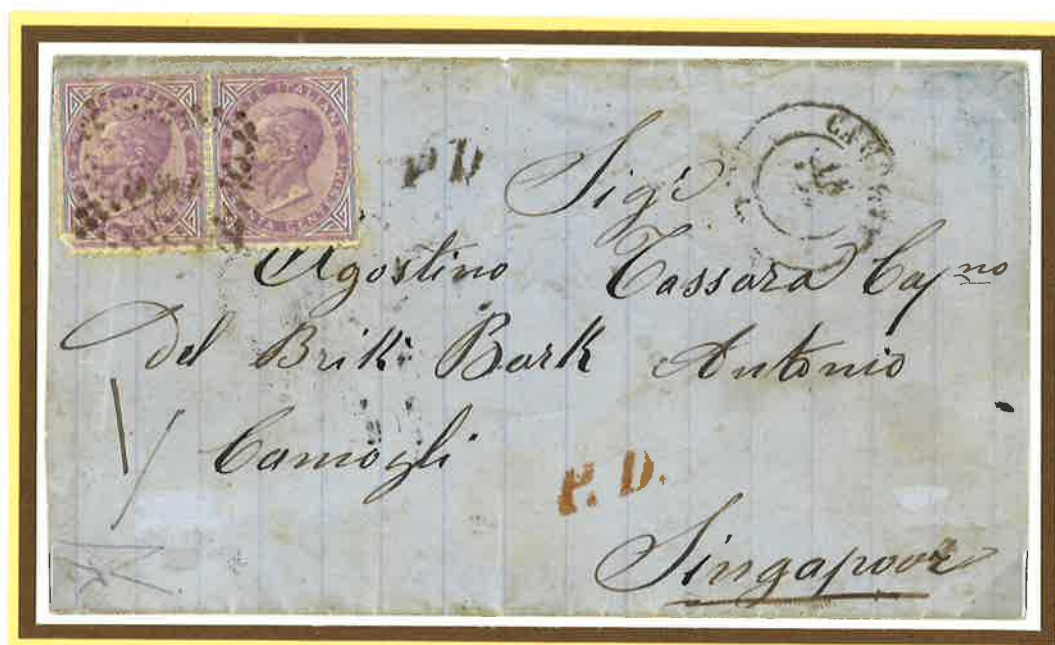 P.D.
Sigr
Agostino Tassara Capno
Del Brik: Bark Antonio
Camogli
P. D.
Singapoor